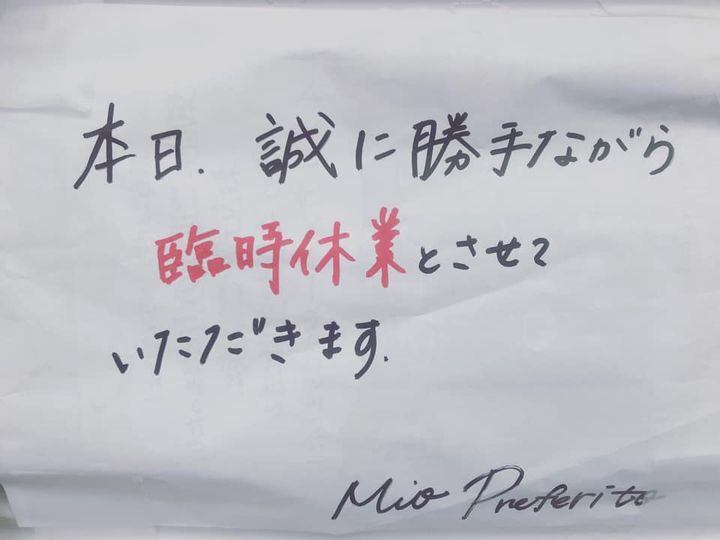 本日、誠に勝手ながら
臨時休業とさせて
いただきます。
Mio Preferito